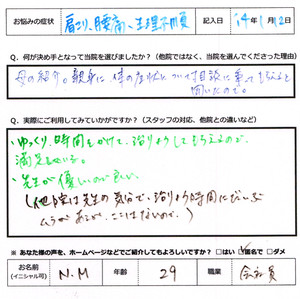 お悩みの症状 肩こり、腰痛、生理不順 記入日 '14年1月12日
Q. 何が決め手となって当院を選びましたか?(他院ではなく、当院を選んでくださった理由)
母の紹介。親身に体の症状について相談に乗ってもらえると
聞いたので。
Q. 実際にご利用してみていかがですか?(スタッフの対応、他院との違いなど)
・ゆっくり、時間をかけて、治りょうしてもらえるので、
満足している。
・先生が優しいのが良い。
(他院は先生の気分で、治りょう時間にだいぶ
ムラがあるが、ここはないので。)
※ あなた様の声を、ホームページなどでご紹介してもよろしいですか? □はい □匿名で □ダメ
お名前 (イニシャル可) N.M 年齢 29 職業 会社員